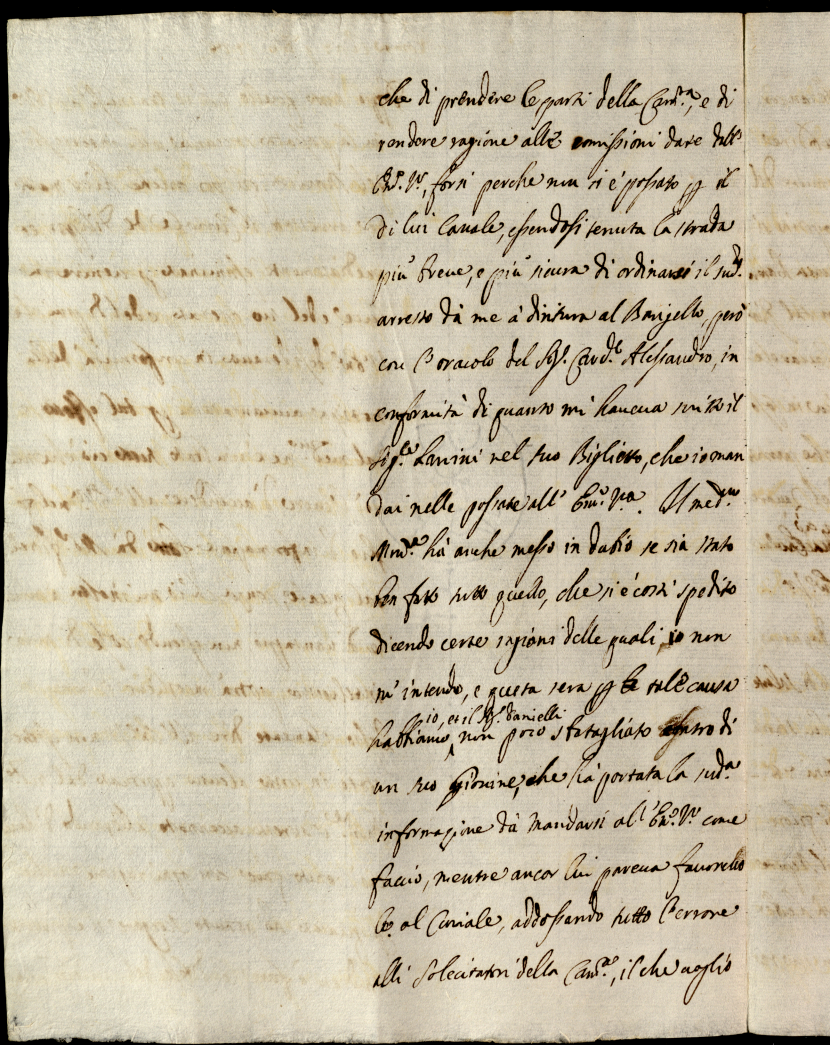 che di prendere le parti della Cam.ra, e di
rendere ragione alle comissioni date dall'
Em.o V.o, forsi perche non si é passato il
di lui Canale, essendosi tenuta la strada
più breve, e più sicura di ordinarsi il sud.o
arresto dà me à dirittura al Barigello, però
con l'oracolo del Sig.r Card.le Alessandro, in
conformità di quanto mi haueua scritto il
Sig.re Lanini nel suo Biglietto, che io man
dai nelle passate all' Em.a V.ra. Il med.mo
hà anche messo in dubio se sia stato
ben fatto tutto quello, che si é costì spedito
dicendo certe ragioni delle quali, io non
m' intendo, e questa sera per tale causa
io, et il Sig.r Danielli
habbiamo non poco sbatagliato di
un suo Giovine, che hà portata la sud.a
informazione dà mandarsi all' Em.a V.a come
faccio, mentre ancor lui pareua fauoreuo
le al Curiale, addossando tutto l'errore
alli Solecitatori della Cam.ra, il che uoglio